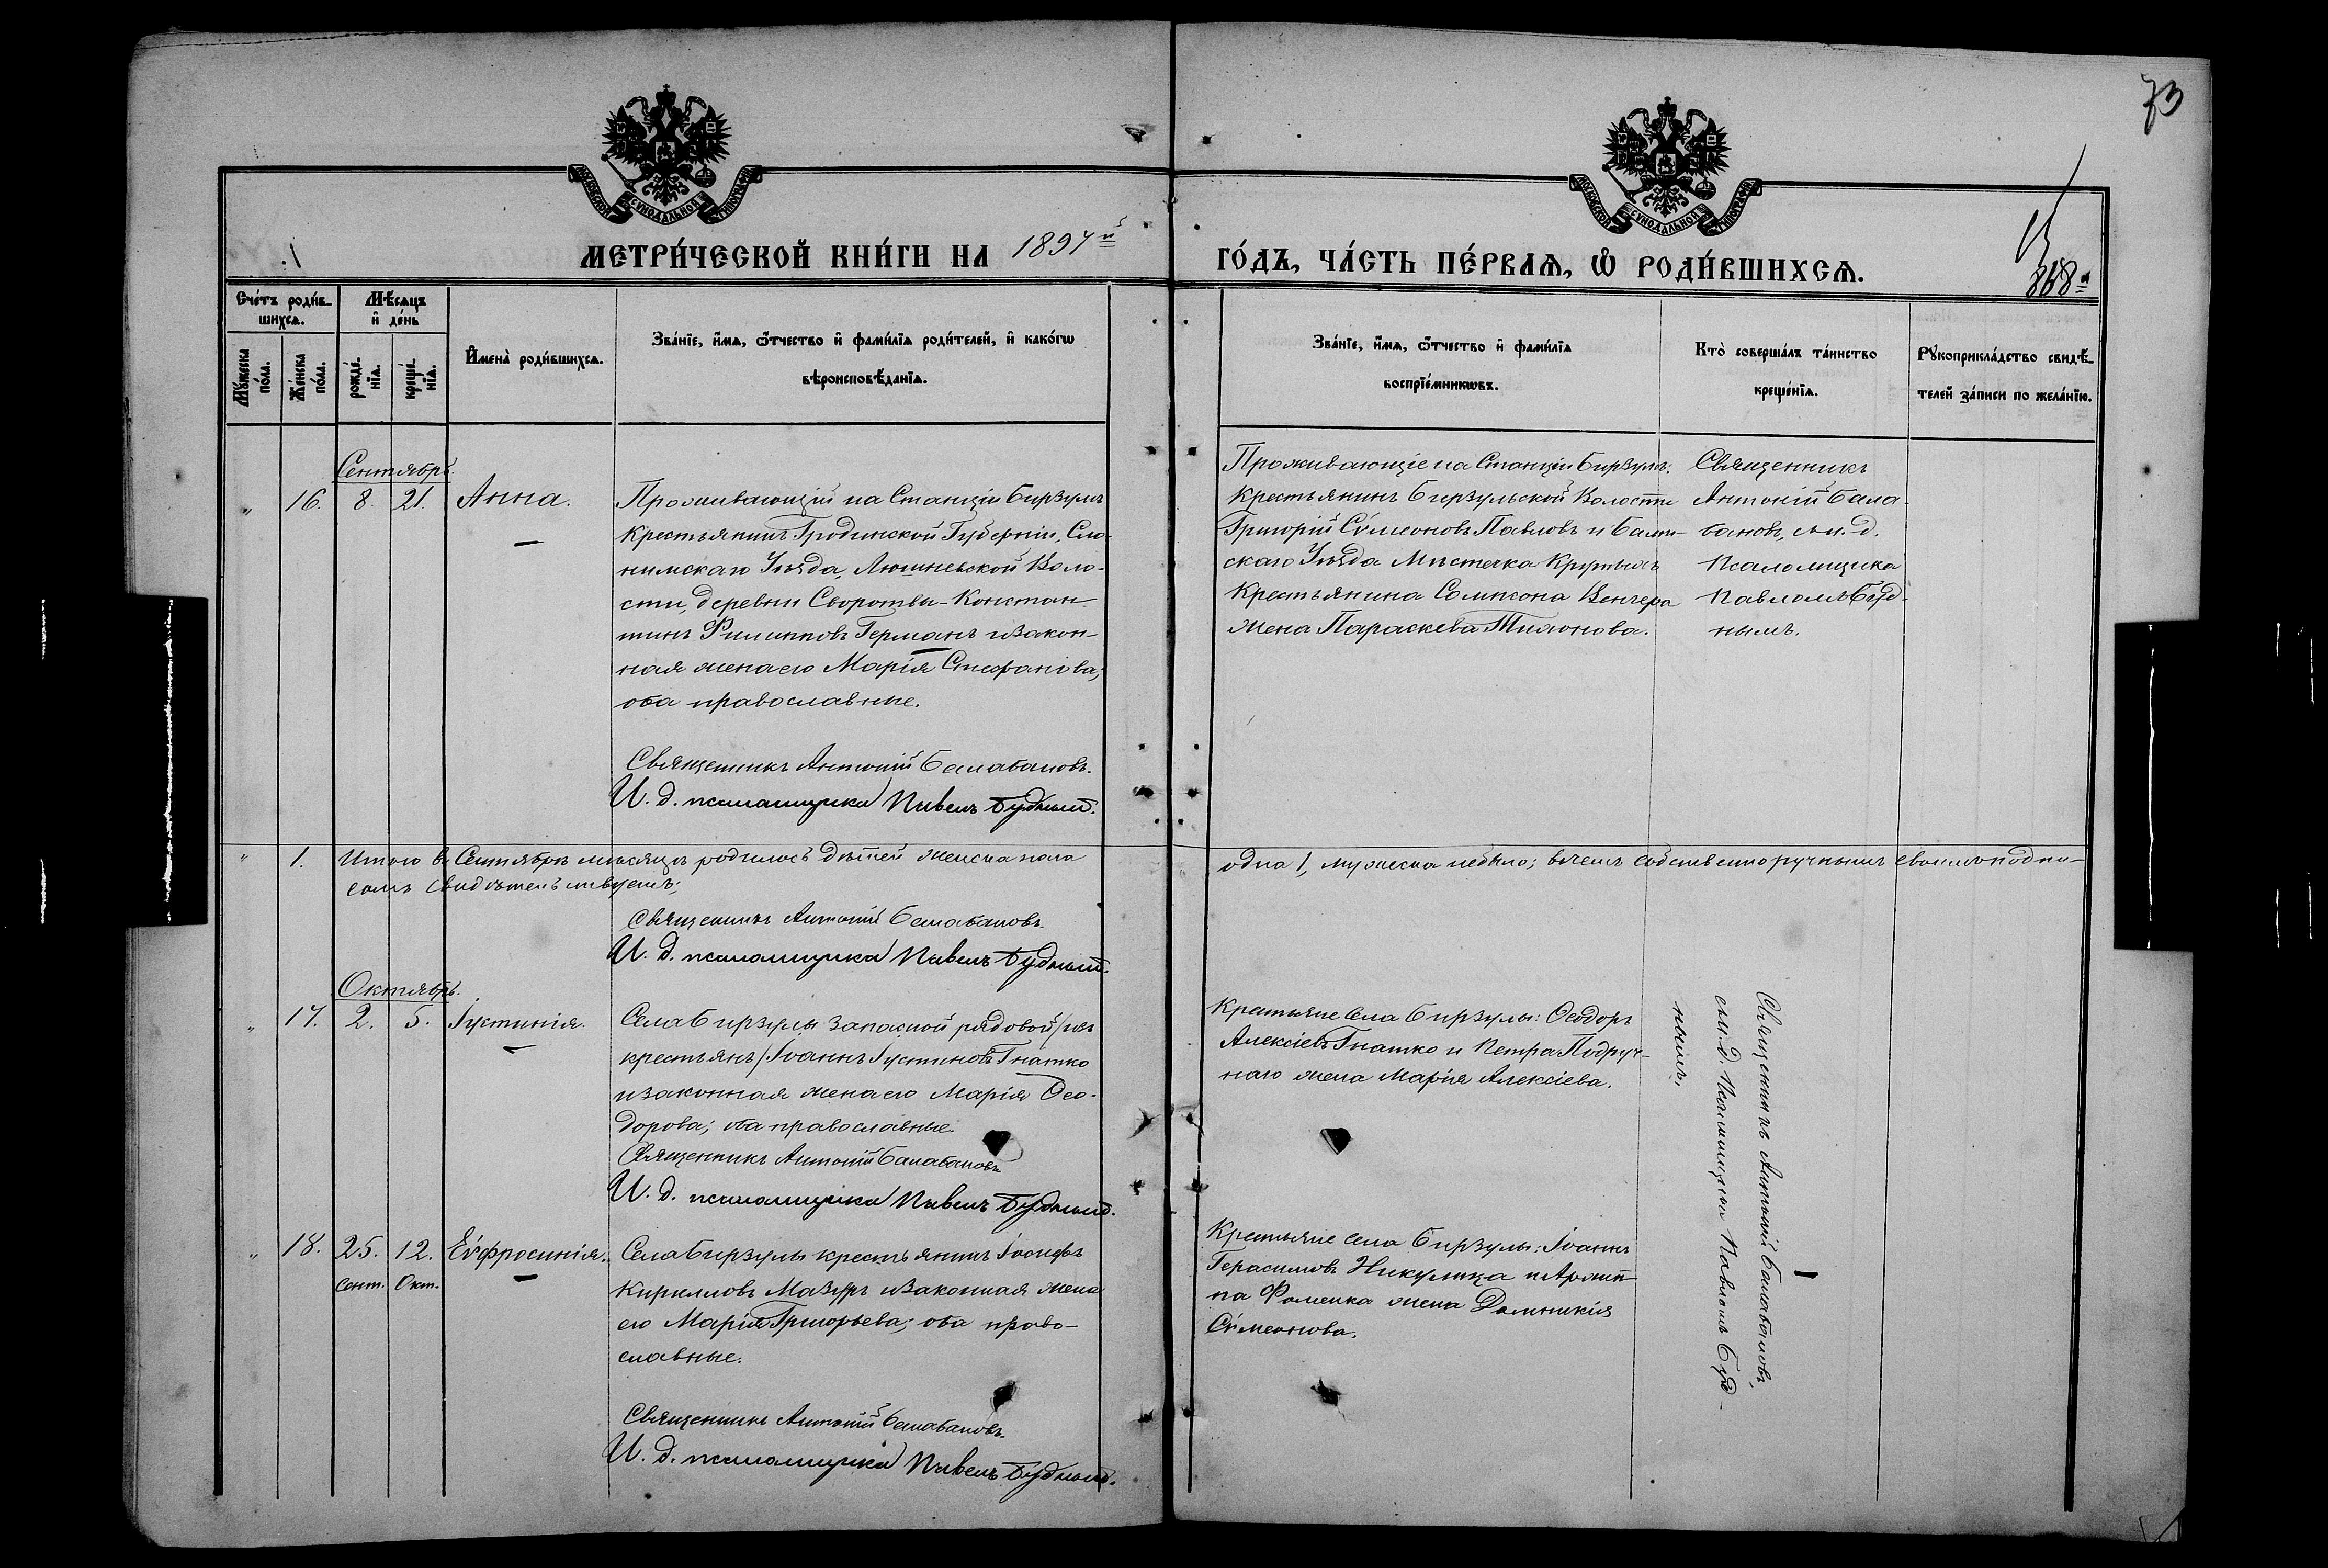 73
МОСКОВСКОЙ СУНОДАЛЬНОЙ ТИПОГРАФІИ
МОСКОВСКОЙ СУНОДАЛЬНОЙ ТИПОГРАФІИ
МЕТРИ́ЧЕСКОЙ КНИ́ГИ НА 1897й
ГО́ДЪ, ЧА́СТЬ ПЕ́РВАѦ, Ѽ РОДИ́ВШИХСѦ.
868
Сче́тъ роди́в-
шихсѧ.
Мѣ́сѧцъ
и҆ де́нь
Мꙋ́жеска
по́ла.
Же́нска
по́ла.
рожде́-
нїѧ.
креще́-
нїѧ.
И҆мена̀ роди́вшихсѧ.
Зва́нїе, и҆́мѧ, ѻ҆́тчество и҆ фами́лїѧ роди́телей, и҆ како́гѡ
вѣроисповѣ́данїѧ.
Зва́нїе, и҆́мѧ, ѻ҆́тчество и҆ фами́лїѧ
воспрїе́мникѡвъ.
Кто̀ соверша́лъ та́инство
креще́нїѧ.
Рꙋкоприкла́дство свидѣ́-
телей за́писи по жела́нїю.
Сентябрь.
" 16. 8. 21. Анна.
Проживающій на Станціи Бирзулѣ
Крестьянинъ Гродненской Губерніи, Сло-
нимскаго Уѣзда, Люшневской Воло-
сти, деревни Своротвы - Констан-
тинъ Филипповъ Германъ и закон-
ная жена его Марія Стефанова;
оба православные.
Священникъ Антоній Балабановъ.
И. д. псаломщика Павелъ Будный.
Проживающіе на Станціи Бирзулѣ:
Крестьянинъ Бирзульской Волости
Григорій Сѵмеоновъ Павловъ и Балт-
скаго Уѣзда Мѣстечка Крутыхъ
Крестьянина Сампсона Венгера
жена Параскева Тихонова.
Священникъ
Антоній Бала-
бановъ, съ и. д.
Псаломщика
Павломъ Буд-
нымъ.
" 1. Итого въ Сентябрѣ мѣсяцѣ родилось дѣтей женска пола
одна 1, мужеска не было; въ чемъ собственноручнымъ своимъ подпи-
сомъ свидѣтельствуемъ;
Священникъ Антоній Балабановъ.
И. д. псаломщика Павелъ Будный.
Октябрь.
" 17. 2. 5. Іустинія.
Села Бирзулы запасной рядовой /изъ
крестьянъ/ Іоаннъ Іустиновъ Гнатко
и законная жена его Марія Ѳео-
дорова; оба православные.
Священникъ Антоній Балабановъ
И. д. псаломщика Павелъ Будный.
Крестьяне Села Бирзулы: Ѳеодоръ
Алексіевъ Гнатко и Петра Подруч-
наго жена Марія Алексіева.
Священникъ Антоній Балабановъ,
съ и. д. Псаломщика Павломъ Буд-
нымъ.
" 18. 25. 12. Еѵфросинія.
Сент. Окт.
Села Бирзулы крестьянинъ Іосифъ
Кирилловъ Мазуръ и законная жена
его Марія Григорьева; оба право-
славные.
Священникъ Антоній Балабановъ.
И. д. псаломщика Павелъ Будный.
Крестьяне села Бирзулы: Іоаннъ
Герасимовъ Никулица и Архип-
па Фоменка жена Домникія
Сѵмеонова.